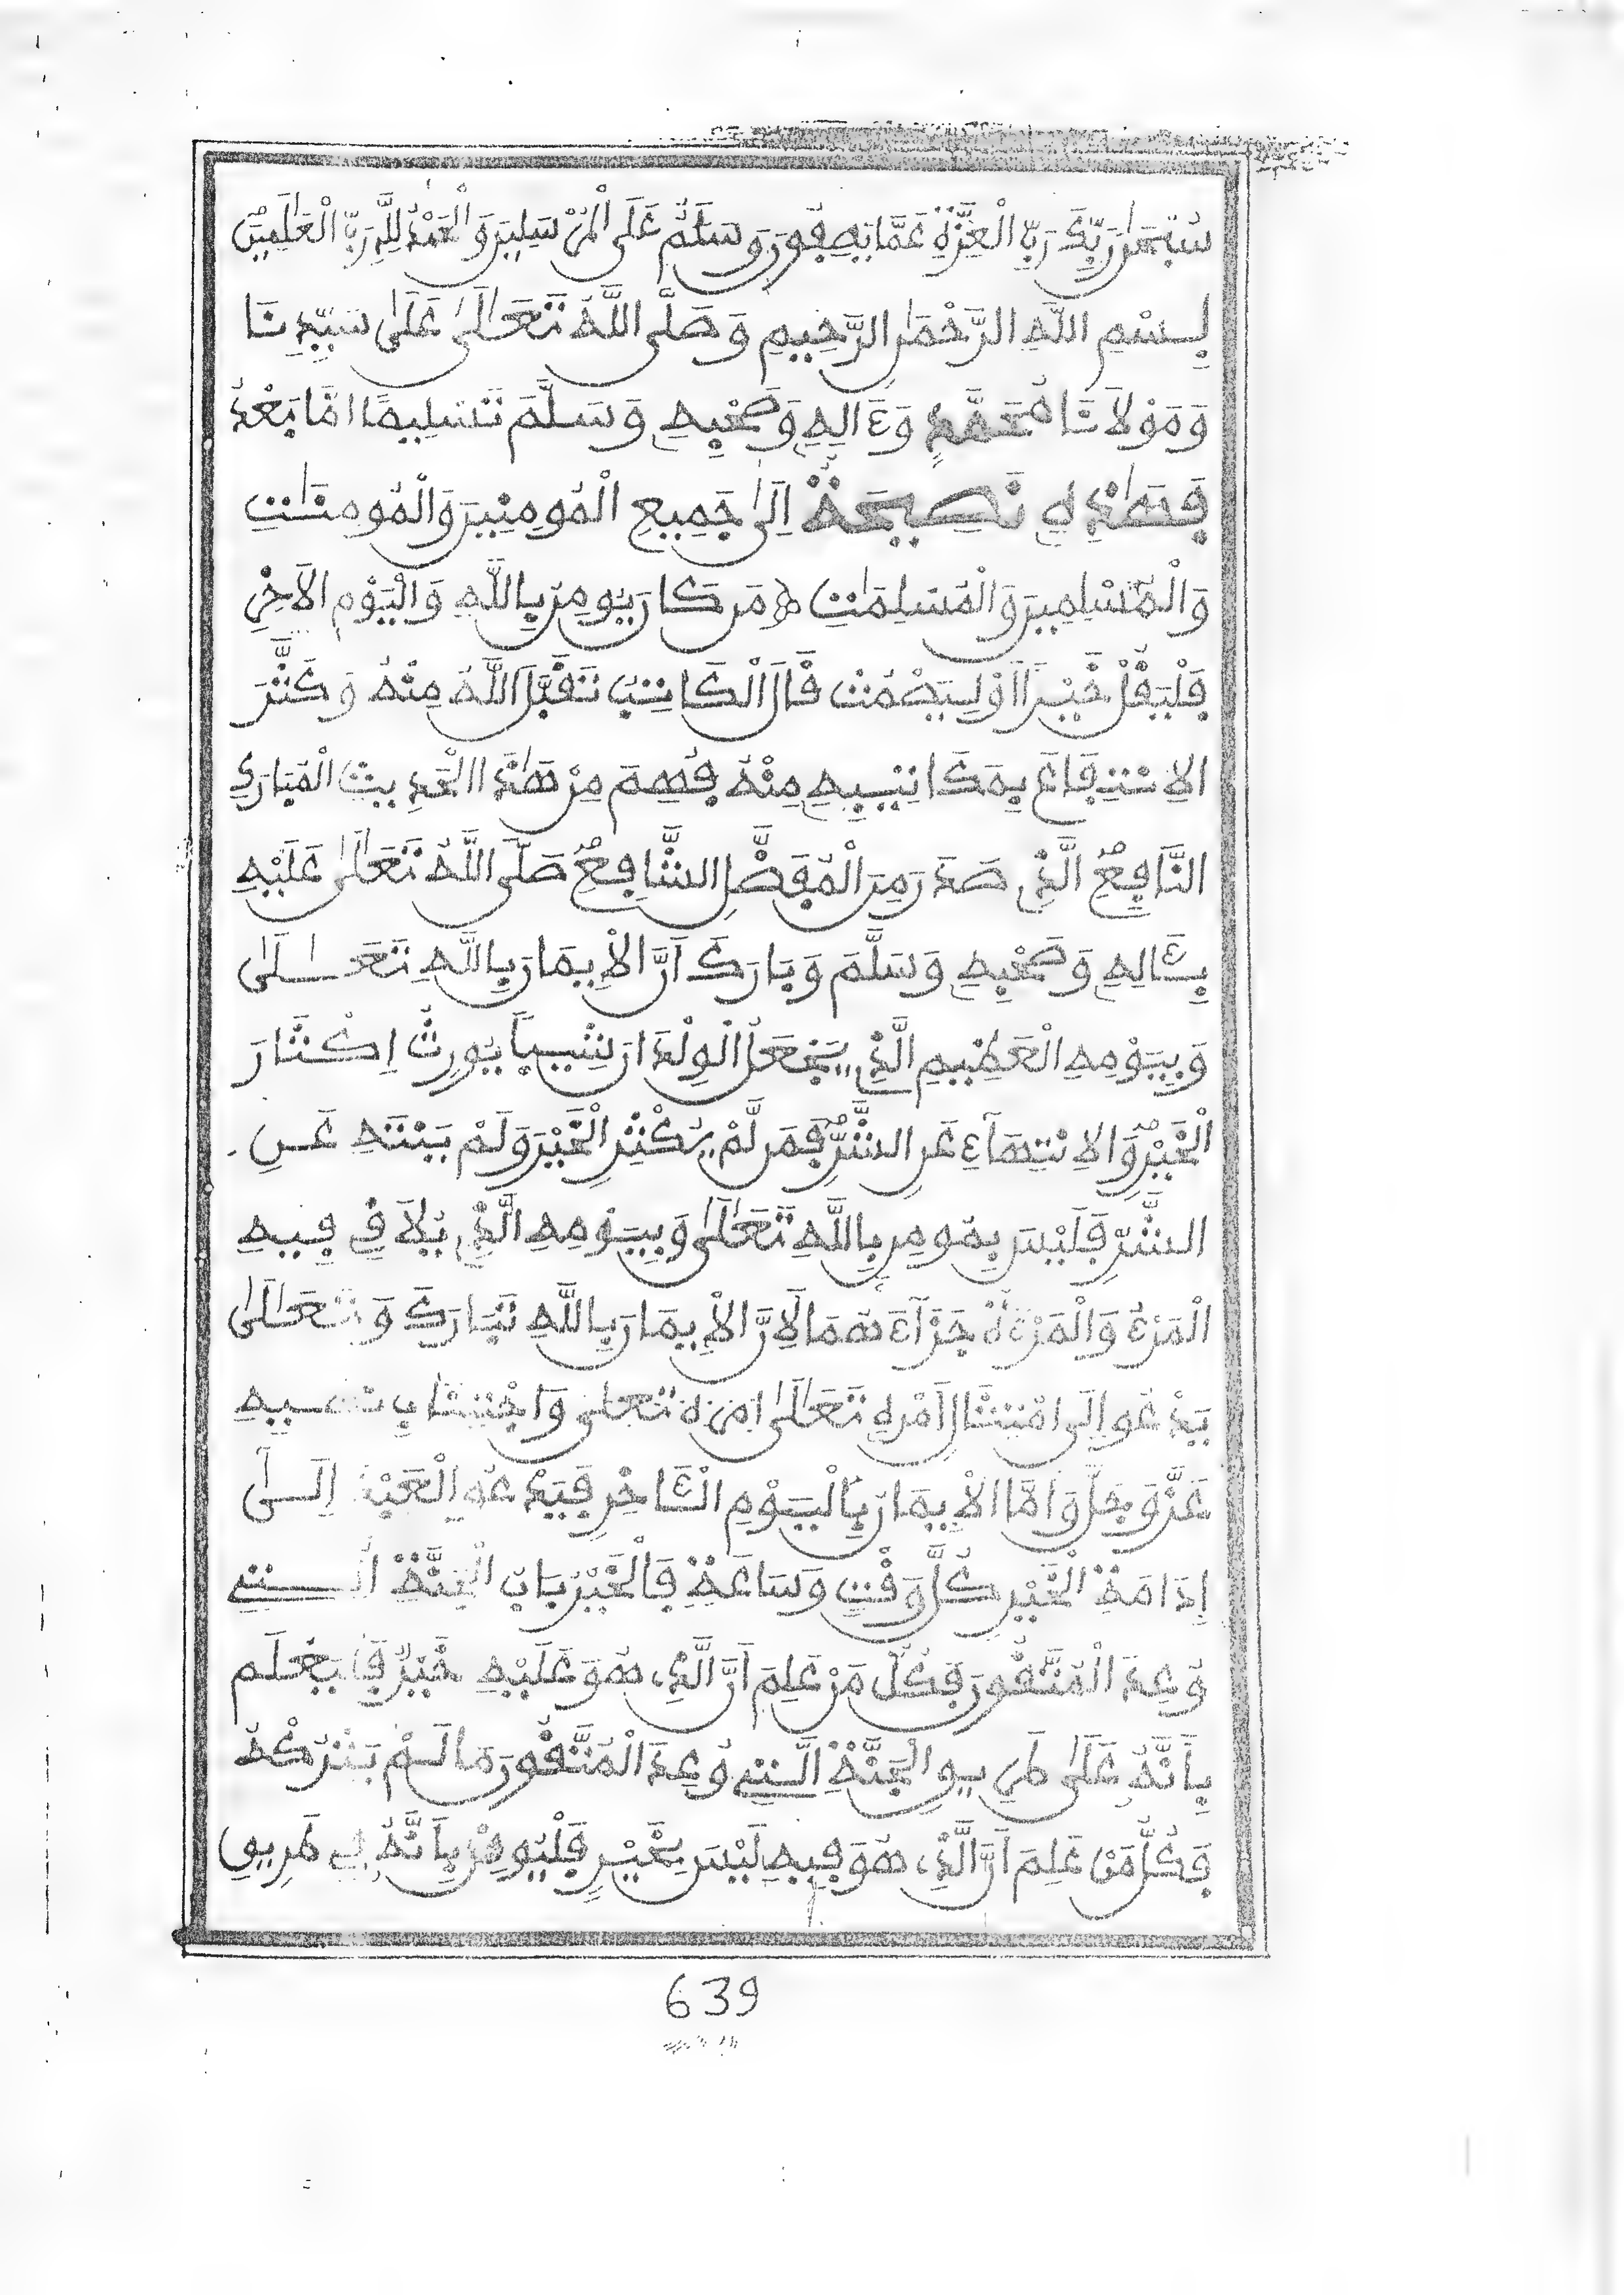 سُبْحَٰنَ رَبِّكَ رَبِّ الْعِزَّةِ عَمَّا يَصِفُونَ وَسَلَٰمٌ عَلَى الْمُرْسَلِينَ وَالْحَمْدُ لِلَّهِ رَبِّ الْعَٰلَمِينَ
بِسْمِ اللَّهِ الرَّحْمَٰنِ الرَّحِيمِ وَصَلَّى اللَّهُ تَعَالَىٰ عَلَىٰ سَيِّدِنَا
وَمَوْلَانَا مُحَمَّدٍ وَءَالِهِ وَصَحْبِهِ وَسَلَّمَ تَسْلِيمًا امَّا بَعْدُ
فَهَٰذِهِ نَصِيحَةٌ اِلَىٰ جَمِيعِ الْمُومِنِينَ وَالْمُومِنَٰتِ
وَالْمُسْلِمِينَ وَالْمُسْلِمَٰتِ مَن كَانَ يُومِنُ بِاللَّهِ وَالْيَوْمِ الَاخِرِ
فَلْيَقُلْ خَيْراً اَوْ لِيَصْمُتْ قَالَ الْكَاتِبُ تَقَبَّلَ اللَّهُ مِنْهُ وَكَثَّرَ
الِانْتِفَاعَ بِمَكَاتِيبِهِ مِنْهُ فُهِمَ مِنْ هَٰذَا الْحَدِيثِ الْمُبَارَكِ
النَّافِعِ الَّذِي صَدَرَ مِنَ الْمُفَضَّلِ الشَّافِعِ صَلَّى اللَّهُ تَعَالَىٰ عَلَيْهِ
بِـَٔالِهِ وَصَحْبِهِ وَسَلَّمَ وَبَارَكَ اَنَّ الْاِيمَانَ بِاللَّهِ تَعَـٰلَىٰ
وَبِيَوْمِهِ الْعَظِيمِ الَّذِي يَجْعَلُ الْوِلْدَانَ شِيباً يُورِثُ اِكْثَارَ
الْخَيْرِ وَالِانْتِهَآءِ عَنِ الشَّرِّ فَمَن لَّمْ يُكْثِرِ الْخَيْرَ وَلَمْ يَنْتَهِ عَنِ
الشَّرِّ فَلَيْسَ بِمُومِنٍ بِاللَّهِ تَعَالَىٰ وَبِيَوْمِهِ الَّذِي يُلَاقِي فِيهِ
الْمَرْءُ وَالْمَرْءَةُ جَزَآءَهُمَا لِاَنَّ الْاِيمَانَ بِاللَّهِ تَبَارَكَ وَتَعَالَىٰ
يَدْعُو اِلَى امْتِثَالِ اَمْرِهِ تَعَالَىٰ امره تعلى وَاجْتِنَابِ نهيه
عَزَّ وَجَلَّ وَاَمَّا الْاِيمَانُ بِالْيَوْمِ الْـَٔاخِرِ فَيَدْعُو الْعَبْدَ اِلَىٰ
اِدَامَةِ الْخَيْرِ كُلَّ وَقْتٍ وَسَاعَةٍ فَالْخَيْرُ بَابُ الْجَنَّةِ الَّتِي
وُعِدَ الْمُتَّقُونَ فَكُلُّ مَنْ عَلِمَ اَنَّ الَّذِي هُوَ عَلَيْهِ خَيْرٌ فَلْيَعْلَم
بِاَنَّهُ عَلَىٰ طَرِيقِ الْجَنَّةِ الَّتِي وُعِدَ الْمُتَّقُونَ مَا لَمْ يَتْرُكْهُ
فَكُلُّ مَنْ عَلِمَ اَنَّ الَّذِي هُوَ فِيهِ لَيْسَ بِخَيْرٍ فَلْيُوقِنْ بِاَنَّهُ فِي طَرِيقِ
639